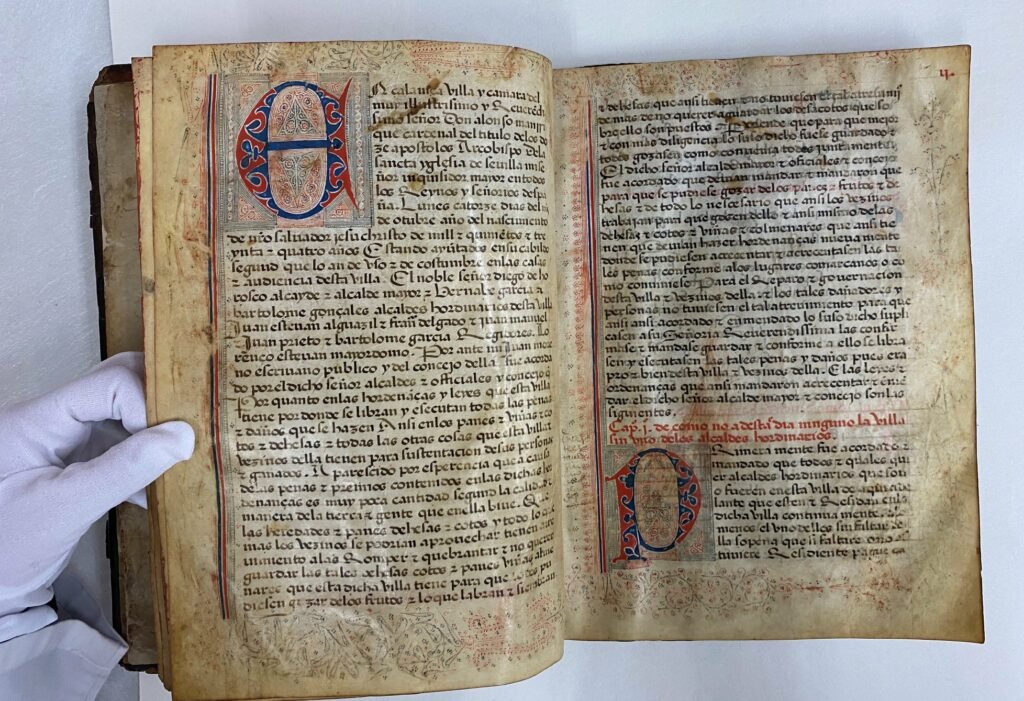 E
N la nuestra villa y camara del
muy illustrissimo y Reuerendi
simo señor Don alonso manrri
que cardenal del titulo delos do
ze apostolos Arcobispo Dela
sancta yglesia de seuilla mise
ñor inquisidor mayor en todos
los Reynos y señorios despa
ña. Lunes catorze dias del mes
de otubre año del nascimiento
de nro saluador jesu christo de mill & quinietos & tre
ynta & quatro años Estando ayutados en su cabildo
segund que lo an de vso & de costumbre enlas casas
& audiencia desta villa. El noble señor diego de ho
rosco alcayde & alcalde mayor & Bernabe garcia &
bartolome gonçales alcaldes hordinarios desta villa
Juan esteuan alguazil & fran delgado & juan manuel
Juan prieto & bartolome garcia Regidores. Lo
renco esteuan mayordomo. Por ante mi Juan more
no escriuano publico y del concejo della fue acorda
do por el dicho señor alcaldes & officiales & concejo q
Por quanto enlas hordenāças y leyes que esta villa
tiene por donde se libran y esecutan todas las penas
& daños que se hazen Ansi enlos panes & viñas & co
tos & dehesas & todas las otras cosas que esta villa &
vezinos della tienen para sustentacion de sus personas
& ganados. A parescido por esperencia que a causa
de las penas & premios contenidos enlas dichas hor
denanças es muy poca cantidad segund la calidad &
manera dela tierra & gente que enella biue. Que
las heredades & panes dehesas & cotos & todo lo que
mas los vezinos se podrian aprouechar tienen atre
uimiento alas Romper & quebrantar & no querer
guardar las tales dehesas cotos & panes viñas
que esta dicha villa tiene para que
diesen gozar delos frutos & lo que labran & siembran
ij.
& dehesas que ansi tienen & no tuuiesen el tal atreuimi
& demas de no querer aguardar los desacotos que so
bre ello son puestos Por ende que para que mejor
& con mas diligencia lo suso dicho fuese guardado &
todos gozasen como conuenia todos juntamente.
El dicho señor alcalde mayor & officiales & concejo
fue acordado que deuian mandar & mandaron que
para que se pudiese gozar delos panes & frutos & de
hesas & de todo lo nescesario que ansi los vezinos
trabajan para que gosen dello & ansi mismo delas
dehesas & cotos & viñas & colmenares que ansi tie
nen que deuian hazer hordenanças nueua mente
donde se pudiesen acrecentar & acrecentasen las ta
les penas conforme alos lugares comarcanos o co
mo conuiniese Para el Reparo & gouernacion
desta villa & vezinos della. & los tales dañadores &
personas no tuuiesen el tal atreuimiento para que
ansi ansi acordado & enmendado lo suso dicho supli
casen a su Señoria Reuerendissima las confir
mase & mandase guardar & conforme a ello se libra
sen y esecutasen las tales penas y daños pues era
pro & bien desta villa & vezinos della. E las leyes &
ordenanças que ansi mandaron acrecentar & enmē
dar el dicho señor alcalde mayor & concejo son las
siguientes.
Cap. j. de como no a desta dia ninguno la villa
sin vno delos alcaldes hordinarios.
P
Rimera mente fue acordado &
mandado que todos & quales qui
er alcaldes hordinarios que son
o fueren enesta villa de aqui ade
lante que esten & Residan enla
dicha villa continua mente. A lo
menos el vno dellos sin faltar de
llo so pena que si faltare o no es
tuuiere Residiente